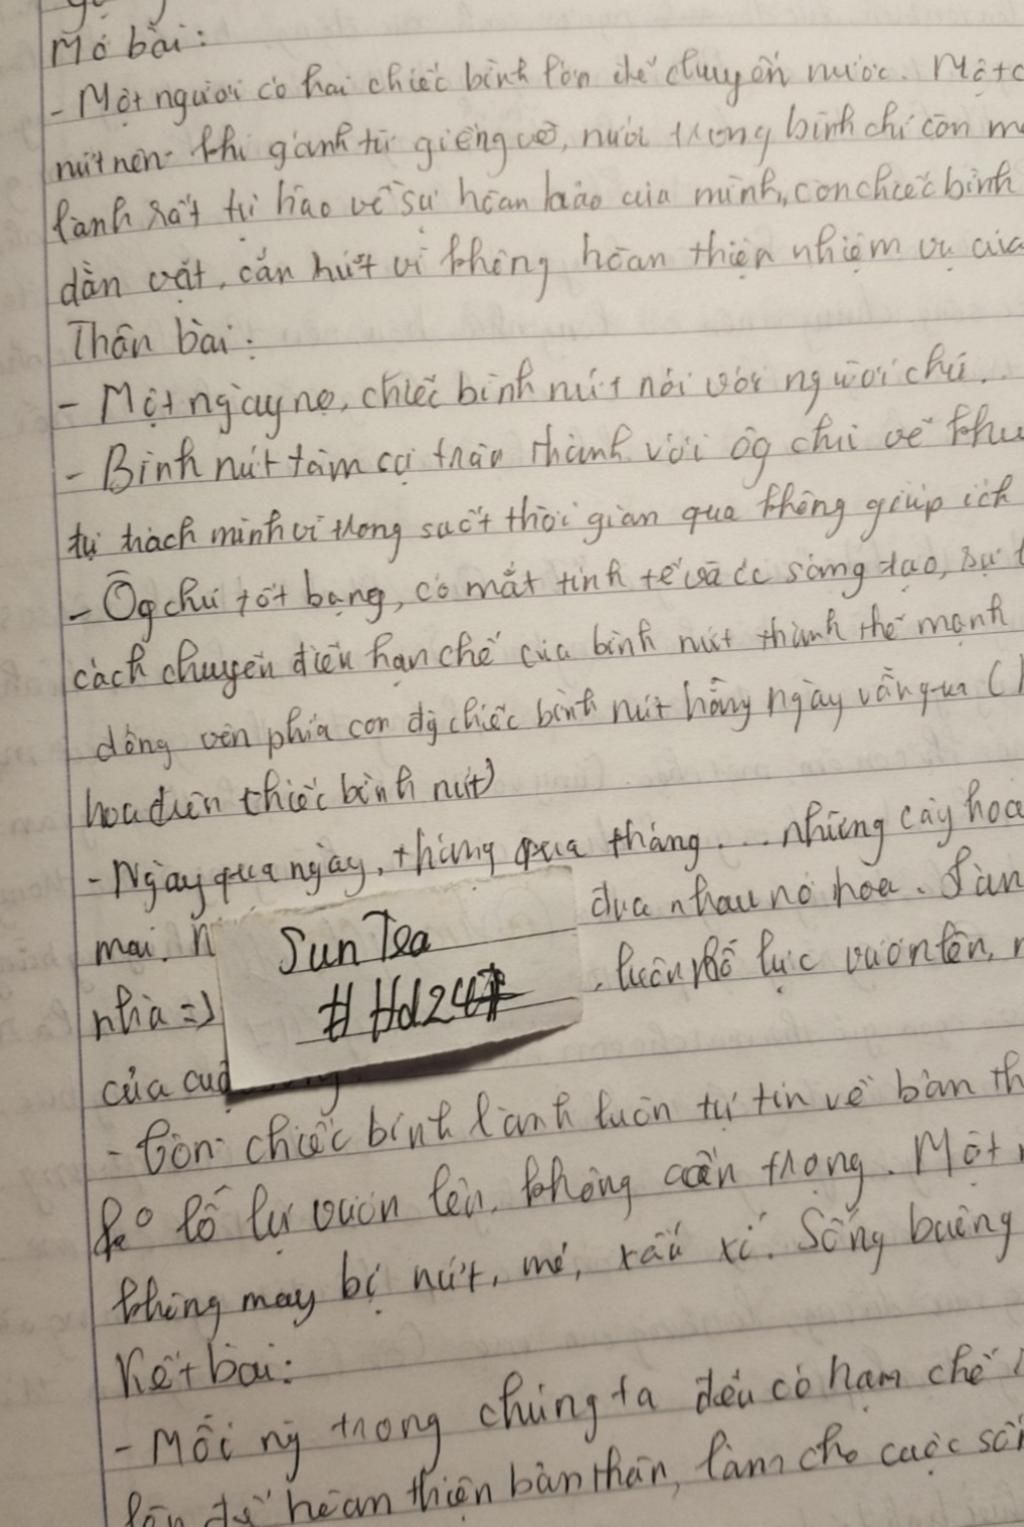 Mở bài:
- Một người có hai chiếc bình lớn để chuyển nước. Một c
nứt nên khi gánh từ giếng về, nước trong bình chỉ còn m
lành rất tự hào về sự hoàn hảo của mình, còn chiếc bình
dằn vặt, cắn rứt vì không hoàn thiện nhiệm vụ của
Thân bài:
- Một ngày nọ, chiếc bình nứt nói với người chủ.
- Bình nứt tâm sự chân thành với ôg chủ về khu
tự trách mình vì trong suốt thời gian qua không giúp ích
- Ôg chủ tốt bụng, có mắt tinh tế và óc sáng tạo,
cách chuyển điểm hạn chế của bình nứt thành thế mạnh
dông vên phía con đg chiếc bình nứt hằng ngày vẫn qua (
hoa dưới chiếc bình nứt)
- Ngày qua ngày, tháng qua tháng... những cây hoa
mai. n đua nhau nở hoa. làn
nhà => , luôn nỗ lực vươn lên,
của cuộ
- Còn chiếc bình lành luôn tự tin về bản th
ko lỗ lự vươn lên, không cẩn trọng. Một
không may bị nứt, mẻ, xấu xí. Sống buông
Kết bài:
- Mỗi ng trong chúng ta đều có hạn chế
để hoàn thiện bản thân, làm cho cuộc số
Sun Tea
#Hd247